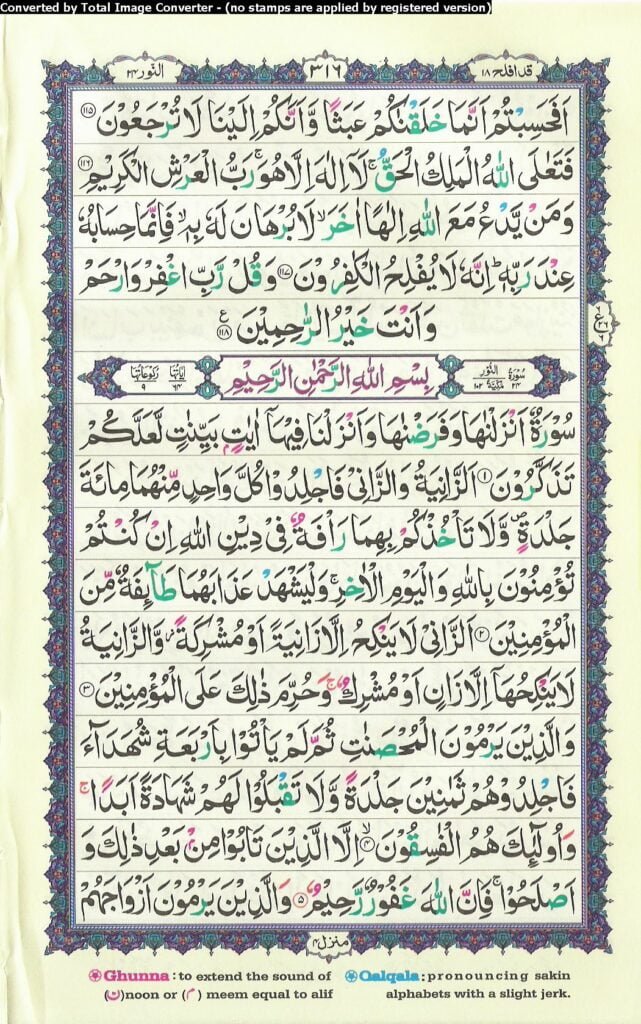 Converted by Total Image Converter - (no stamps are applied by registered version)
قد افلح ١٨
٣١٦
النور ٢٤
اَفَحَسِبْتُمْ اَنَّمَا خَلَقْنٰكُمْ عَبَثًا وَّاَنَّكُمْ اِلَيْنَا لَا تُرْجَعُوْنَ ﴿١١٥﴾
فَتَعٰلَى اللّٰهُ الْمَلِكُ الْحَقُّ ۚ لَاۤ اِلٰهَ اِلَّا هُوَ ۚ رَبُّ الْعَرْشِ الْكَرِيْمِ ﴿١١٦﴾
وَمَنْ يَّدْعُ مَعَ اللّٰهِ اِلٰهًا اٰخَرَ ۙ لَا بُرْهَانَ لَهٗ بِهٖ ۙ فَاِنَّمَا حِسَابُهٗ
عِنْدَ رَبِّهٖ ؕ اِنَّهٗ لَا يُفْلِحُ الْكٰفِرُوْنَ ﴿١١٧﴾ وَقُلْ رَّبِّ اغْفِرْ وَارْحَمْ
وَاَنْتَ خَيْرُ الرّٰحِمِيْنَ ﴿١١٨﴾ ع
سُوْرَةُ النُّوْرِ ٢٤ مَدَنِيَّةٌ ١٠٢
بِسْمِ اللّٰهِ الرَّحْمٰنِ الرَّحِيْمِ
اٰيَاتُهَا ٦٤ رُكُوْعَاتُهَا ٩
سُوْرَةٌ اَنْزَلْنٰهَا وَفَرَضْنٰهَا وَاَنْزَلْنَا فِيْهَاۤ اٰيٰتٍۭ بَيِّنٰتٍ لَّعَلَّكُمْ
تَذَكَّرُوْنَ ﴿١﴾ اَلزَّانِيَةُ وَالزَّانِيْ فَاجْلِدُوْا كُلَّ وَاحِدٍ مِّنْهُمَا مِائَةَ
جَلْدَةٍ ۪ وَّلَا تَاْخُذْكُمْ بِهِمَا رَاْفَةٌ فِيْ دِيْنِ اللّٰهِ اِنْ كُنْتُمْ
تُؤْمِنُوْنَ بِاللّٰهِ وَالْيَوْمِ الْاٰخِرِ ۚ وَلْيَشْهَدْ عَذَابَهُمَا طَآىِٕفَةٌ مِّنَ
الْمُؤْمِنِيْنَ ﴿٢﴾ اَلزَّانِيْ لَا يَنْكِحُ اِلَّا زَانِيَةً اَوْ مُشْرِكَةً ؗ وَّالزَّانِيَةُ
لَا يَنْكِحُهَاۤ اِلَّا زَانٍ اَوْ مُشْرِكٌ ۚ وَحُرِّمَ ذٰلِكَ عَلَى الْمُؤْمِنِيْنَ ﴿٣﴾
وَالَّذِيْنَ يَرْمُوْنَ الْمُحْصَنٰتِ ثُمَّ لَمْ يَاْتُوْا بِاَرْبَعَةِ شُهَدَآءَ
فَاجْلِدُوْهُمْ ثَمٰنِيْنَ جَلْدَةً وَّلَا تَقْبَلُوْا لَهُمْ شَهَادَةً اَبَدًا ۚ
وَاُولٰٓىِٕكَ هُمُ الْفٰسِقُوْنَ ﴿٤﴾ۙ اِلَّا الَّذِيْنَ تَابُوْا مِنْۢ بَعْدِ ذٰلِكَ وَ
اَصْلَحُوْا ۚ فَاِنَّ اللّٰهَ غَفُوْرٌ رَّحِيْمٌ ﴿٥﴾ وَالَّذِيْنَ يَرْمُوْنَ اَزْوَاجَهُمْ
منزل ٤
Ghunna : to extend the sound of
(ن) noon or (م) meem equal to alif
Qalqala : pronouncing sakin
alphabets with a slight jerk.